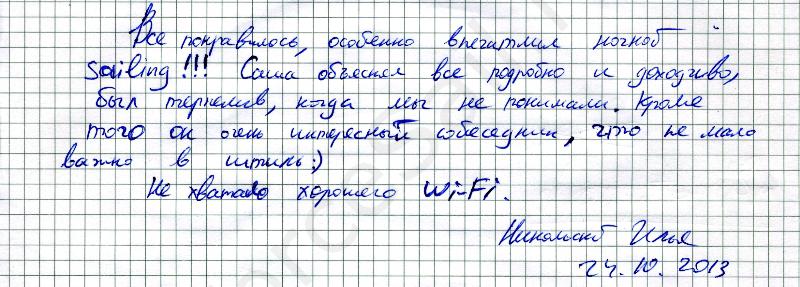 Все понравилось, особенно впечатлил ночной
sailing!!! Саша объяснял все подробно и доходчиво,
был терпелив, когда мы не понимали. Кроме
того он очень интересный собеседник, что не мало
важно в штиль:)
Не хватало хорошего Wi-Fi.
Никольский Илья
24.10.2013